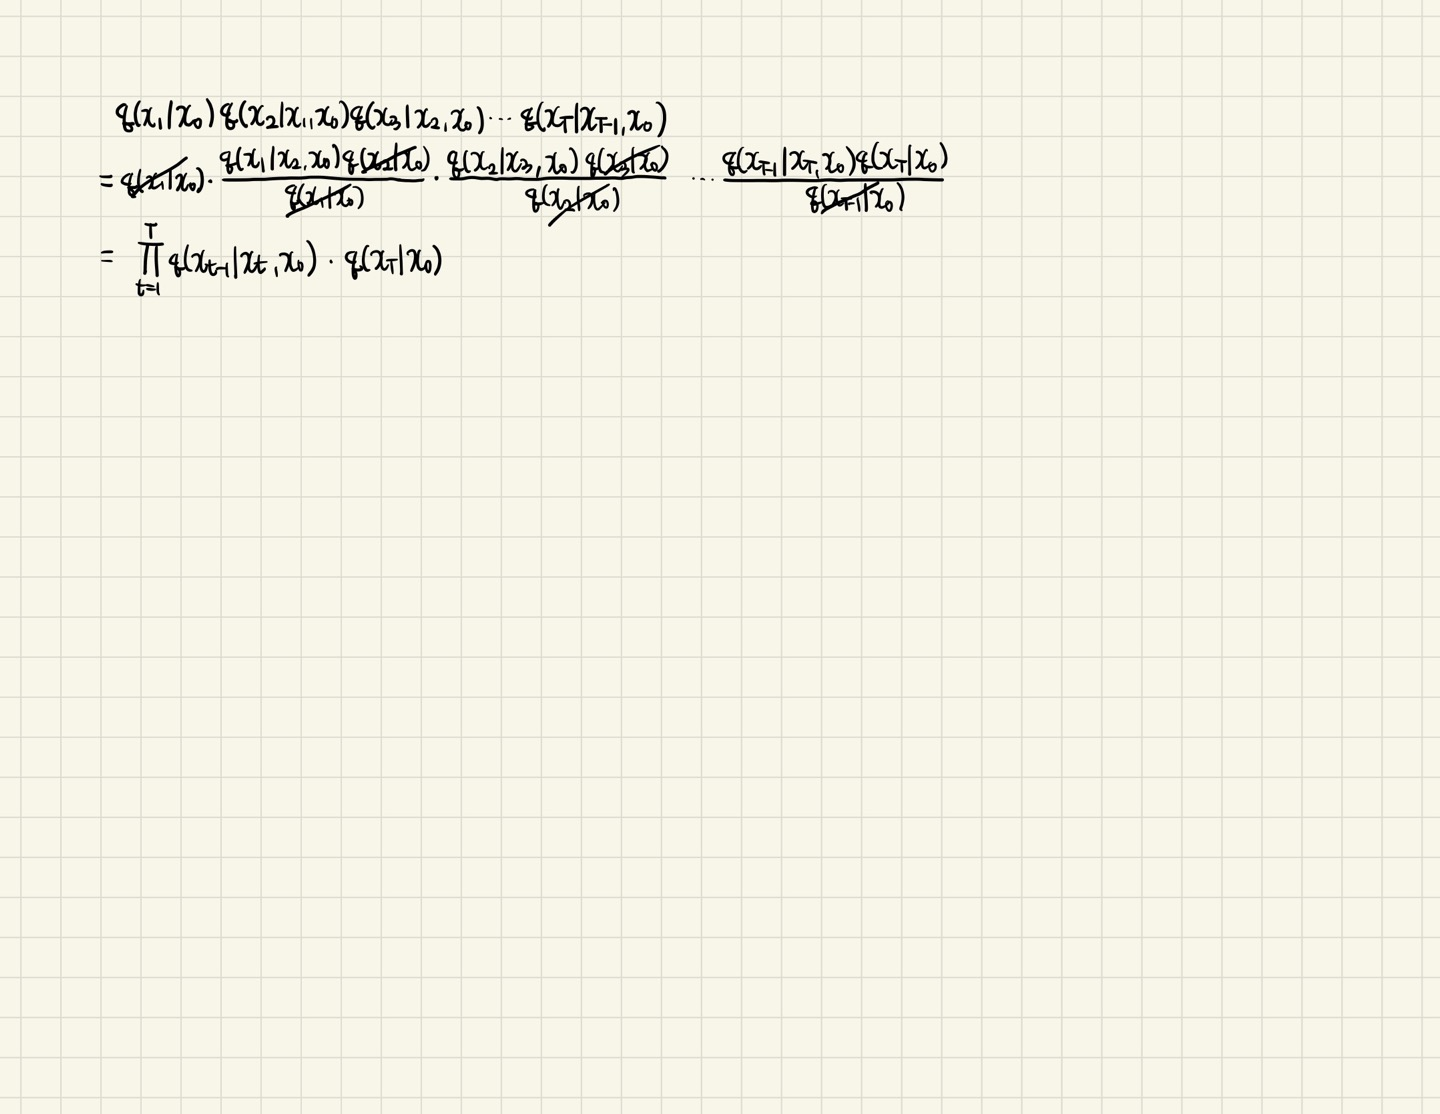 q(x₁|x₀)q(x₂|x₁,x₀)q(x₃|x₂,x₀)⋯q(x_T|x_{T-1},x₀)
= q(x₁|x₀)· \frac{q(x₁|x₂,x₀)q(x₂|x₀)}{q(x₁|x₀)} · \frac{q(x₂|x₃,x₀)q(x₃|x₀)}{q(x₂|x₀)} ⋯ \frac{q(x_{T-1}|x_T,x₀)q(x_T|x₀)}{q(x_{T-1}|x₀)}
= \prod_{t=1}^{T} q(x_{t-1}|x_t,x₀) · q(x_T|x₀)